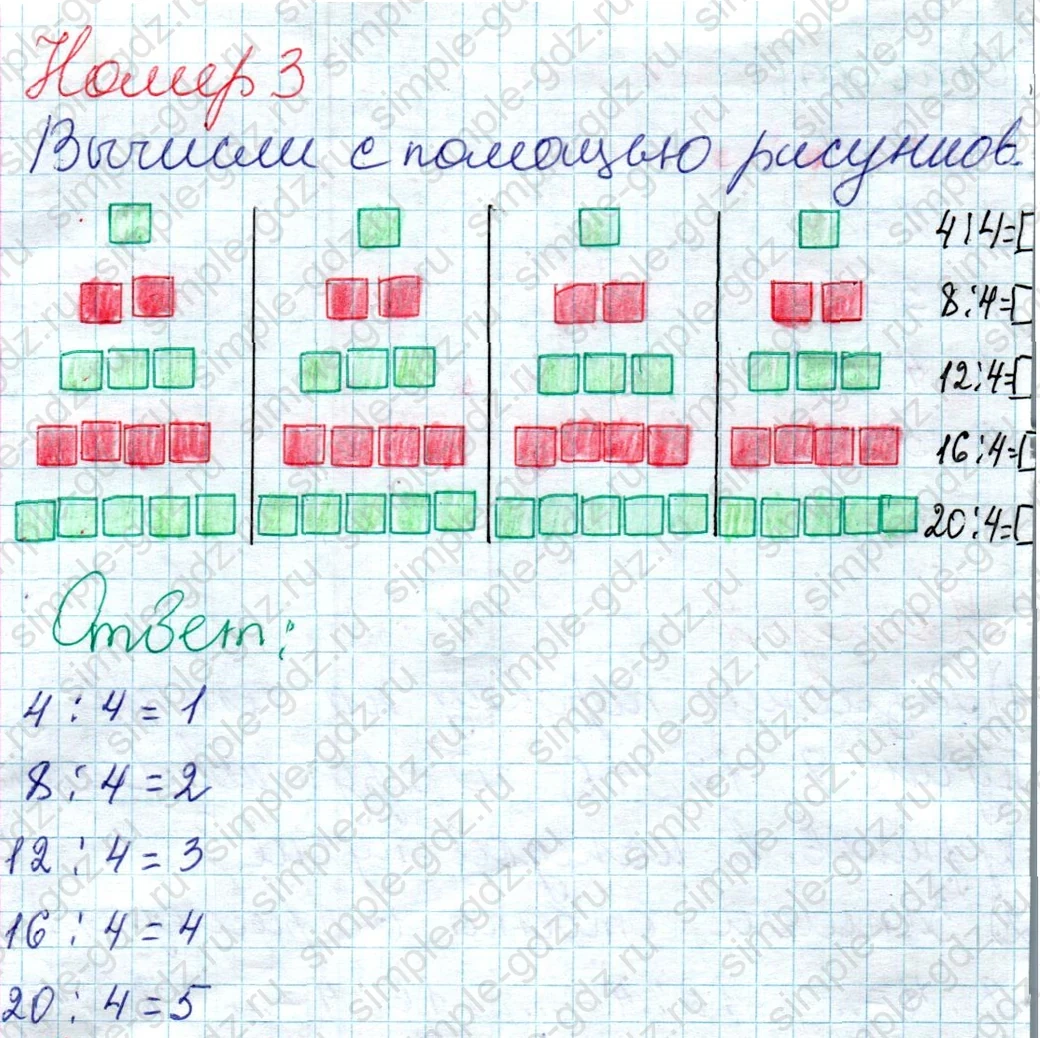 Номер 3
Вычисли с помощью рисунков.
4:4=
8:4=
12:4=
16:4=
20:4=
Ответ:
4 : 4 = 1
8 : 4 = 2
12 : 4 = 3
16 : 4 = 4
20 : 4 = 5
simple-gdz.ru